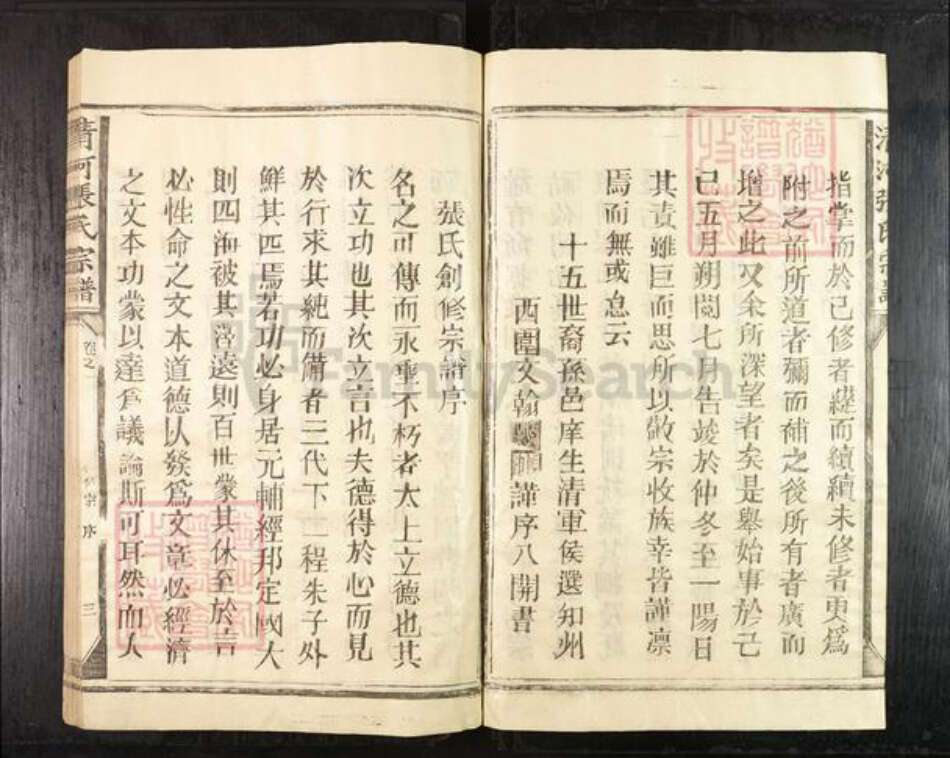 指掌而於已修者繼而續續未修者更為
附之前所道者彌而補之後所有者廣而
增之此又余所深望者矣是舉始事於己
巳五月朔閱七月告竣於仲冬至一陽日
其責雖巨而思所以敬宗收族幸皆謹凛
焉而無或怠云
十五世裔孫邑庠生清軍侯選知州
西園文翰 謹序八開書
張氏創修宗譜序
名之可傳而永垂不朽者太上立德也其
次立功也其次立言也夫德得於心而見
於行求其純而備者三代下二程朱子外
鮮其匹焉若功必身居元輔經邦定國大
則四海被其澤遠則百世蒙其休至於言
必性命之文本道德以發為文章必經濟
之文本功業以達為議論斯可耳然而人
清河張氏宗譜
卷之
序
三
清河張氏宗譜
FamilySearch